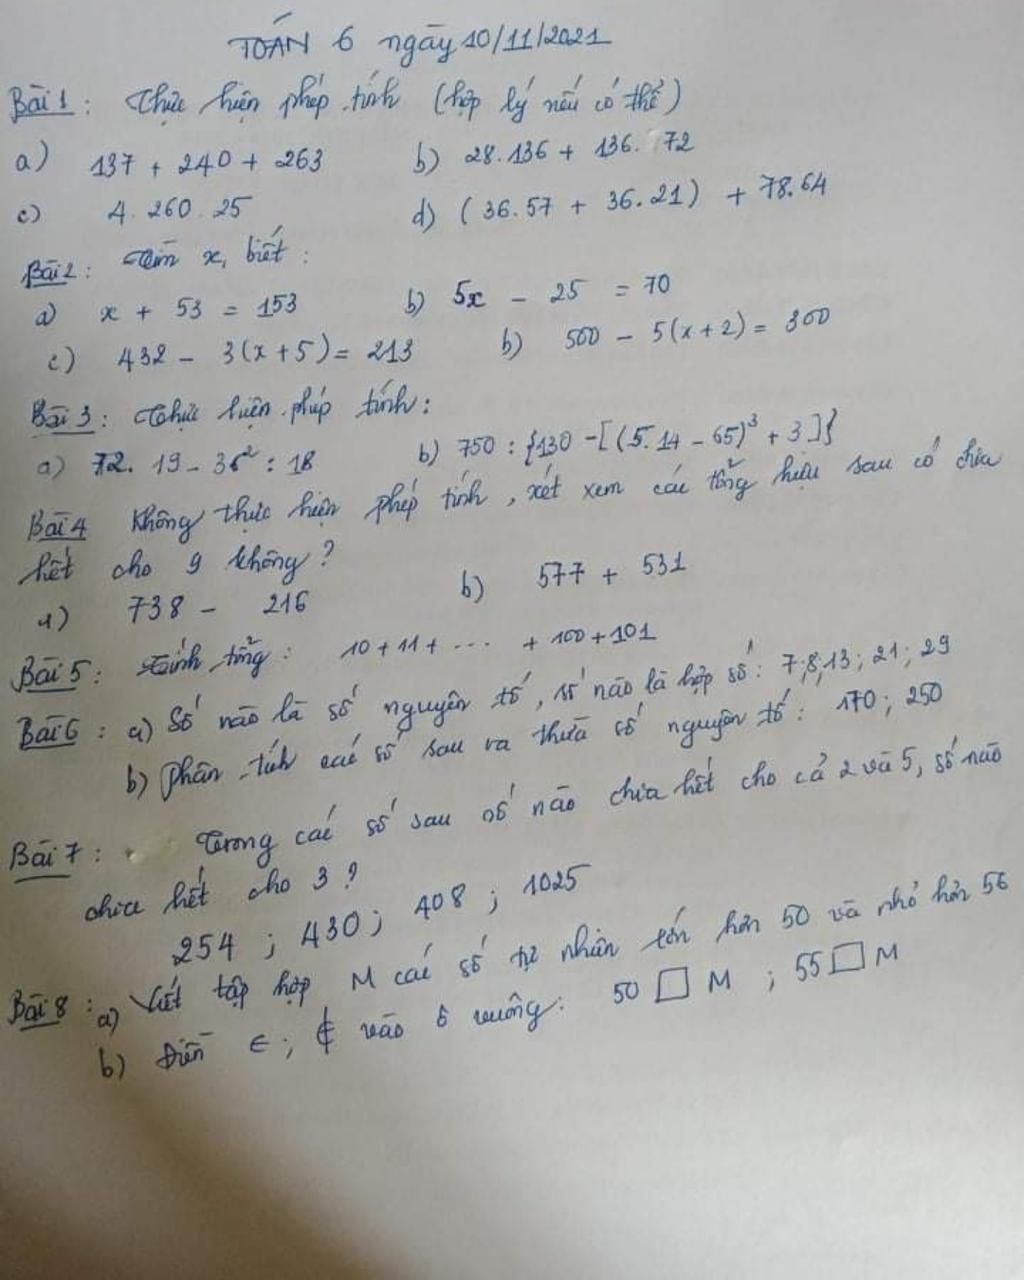 TOÁN 6 ngày 10/11/2021
Bài 1: Thực hiện phép tính (hợp lý nếu có thể)
a) 137 + 240 + 263 b) 28.136 + 136.72
c) 4.260.25 d) (36.57 + 36.21) + 78.64
Bài 2: Tìm x, biết:
a) x + 53 = 153 b) 5x - 25 = 70
c) 432 - 3(x+5) = 213 b) 500 - 5(x+2) = 300
Bài 3: Thực hiện phép tính:
a) 72.19 - 36² : 18 b) 750 : {130 - [(5.14 - 65)³ + 3]}
Bài 4 Không thực hiện phép tính, xét xem các tổng hiệu sau có chia
hết cho 9 không?
a) 738 - 216 b) 577 + 531
Bài 5: Tính tổng: 10 + 11 + ... + 100 + 101
Bài 6: a) Số nào là số nguyên tố, số nào là hợp số: 7; 8; 13; 21; 29
b) Phân tích các số sau ra thừa số nguyên tố: 170; 250
Bài 7: Trong các số sau số nào chia hết cho cả 2 và 5, số nào
chia hết cho 3?
254; 430; 408; 1025
Bài 8: a) Viết tập hợp M các số tự nhiên lớn hơn 50 và nhỏ hơn 56
b) Điền ∈; ∉ vào ô vuông: 50 □ M; 55 □ M